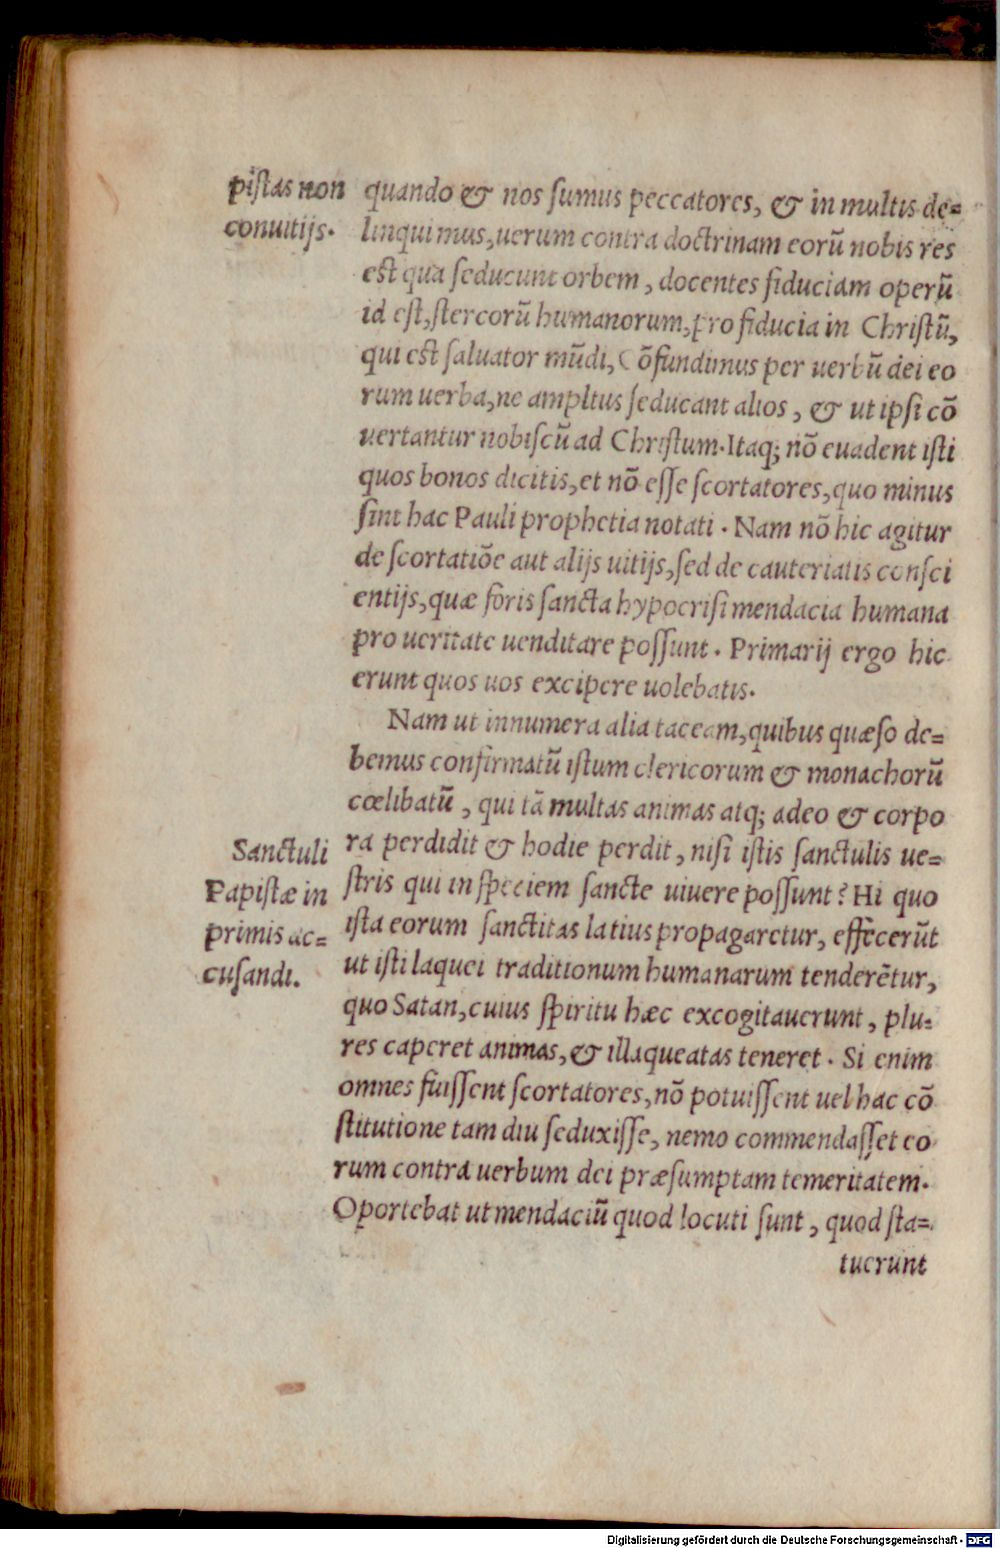 piſtas non
conuitijs.
quando & nos ſumus peccatores, & in multis de=
linquimus, uerum contra doctrinam eorū nobis res
eſt qua ſeducunt orbem, docentes fiduciam operū
id eſt, ſtercorū humanorum, pro fiducia in Chriſtū,
qui eſt ſaluator mūdi, Cōfundimus per uerbū dei eo
rum uerba, ne ampltus ſeducant alios, & ut ipſi cō
uertantur nobiſcū ad Chriſtum. Itaq; nō euadent iſti
quos bonos dicitis, et nō eſſe ſcortatores, quo minus
ſint hac Pauli prophetia notati. Nam nō hic agitur
de ſcortatiōe aut alijs uitijs, ſed de cauteriatis conſci
entijs, quæ foris ſancta hypocriſi mendacia humana
pro ueritate uenditare poſſunt. Primarij ergo hic
erunt quos uos excipere uolebatis.
Nam ut innumera alia taceam, quibus quæſo de=
bemus confirmatū iſtum clericorum & monachorū
cœlibatū, qui tā multas animas atq; adeo & corpo
ra perdidit & hodie perdit, niſi iſtis ſanctulis ue=
ſtris qui in ſpeciem ſancte uiuere poſſunt? Hi quo
iſta eorum ſanctitas latius propagaretur, effecerūt
ut iſti laquei traditionum humanarum tenderētur,
quo Satan, cuius ſpiritu hæc excogitauerunt, plu=
res caperet animas, & illaqueatas teneret. Si enim
omnes fuiſſent ſcortatores, nō potuiſſent uel hac cō
ſtitutione tam diu ſeduxiſſe, nemo commendaſſet eo
rum contra uerbum dei præſumptam temeritatem.
Oportebat ut mendaciū quod locuti ſunt, quod ſta=
tuerunt
Sanctuli
Papiſtæ in
primis ac=
cuſandi.
Digitalisierung gefördert durch die Deutsche Forschungsgemeinschaft - DFG